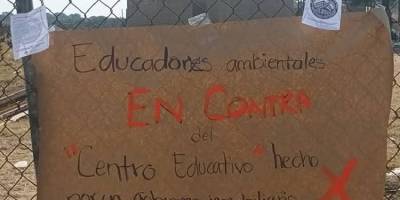 Educadores ambientales
EN CONTRA
del
"Centro Educativo" hecho
por un gobierno
X